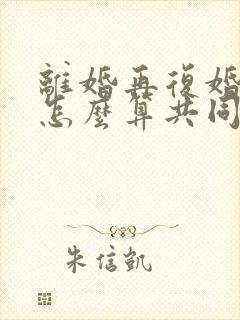 離婚再復婚
怎麼算共同
朱信凱